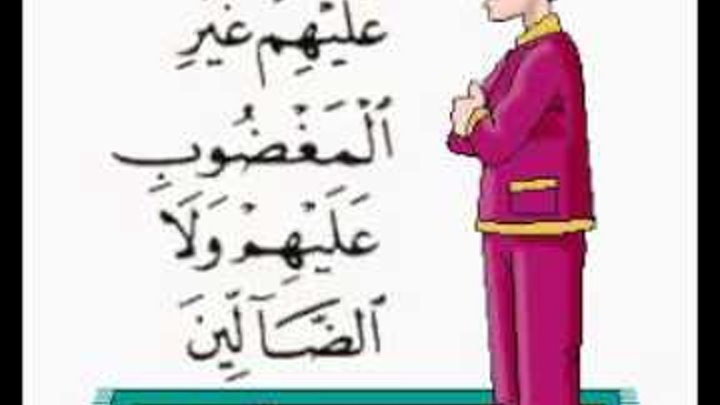 عَلَيْهِمْ غَيْرِ
ٱلْمَغْضُوبِ
عَلَيْهِمْ وَلَا
ٱلضَّآلِّينَ